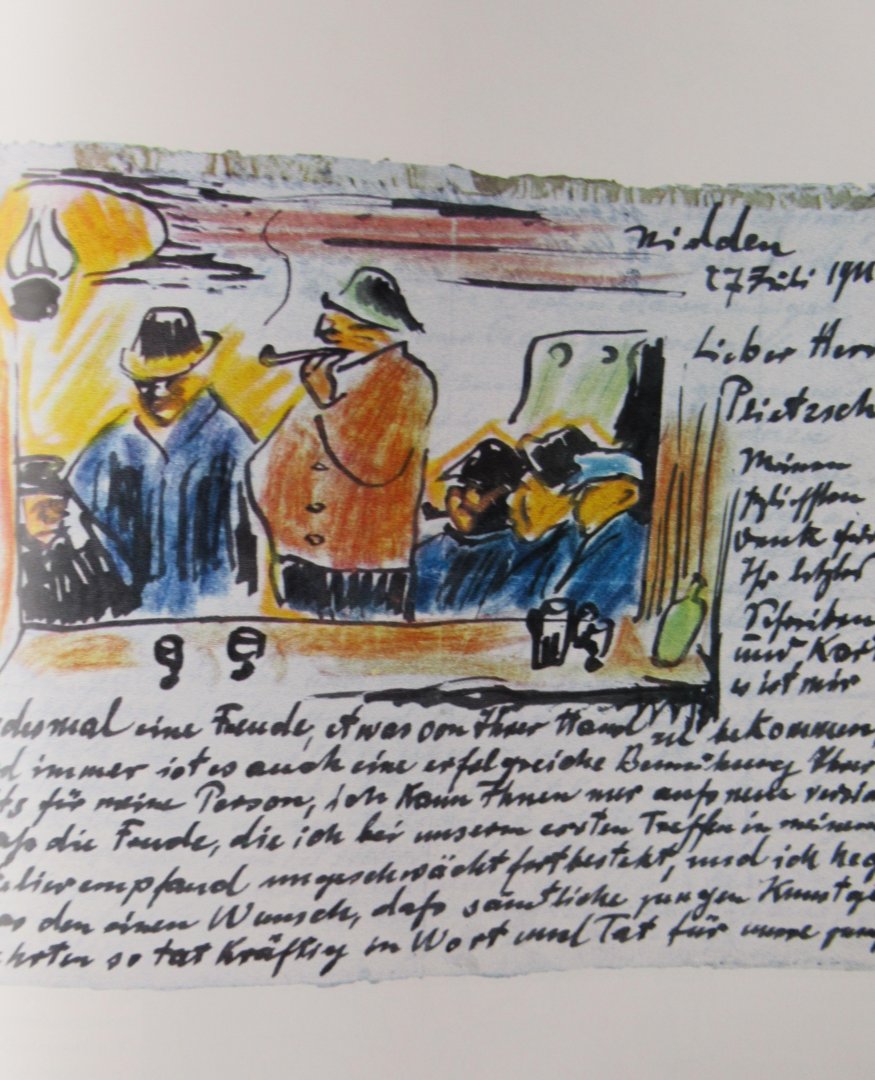 Nidden
27 Juli 191
Lieber Herr
Plietzsch
Meinen
Dank für
Ihr letztes
Schreiben
und Kart
es ist mir
desmal eine Freude, etwas von Ihrer Hand zu bekommen,
d immer ist es auch eine erfolgreiche Bemühung Ihrer
ts für meine Person, ich kann Ihnen nur aufs neue versi
afs die Freude, die ich bei unserm ersten Treffen in meinem
telier empfand ungeschwächt fortbesteht, und ich heg
den einen Wunsch, dafs sämtliche jungen Kunstge
hrten so tatkräftig in Wort und Tat für unsre jung